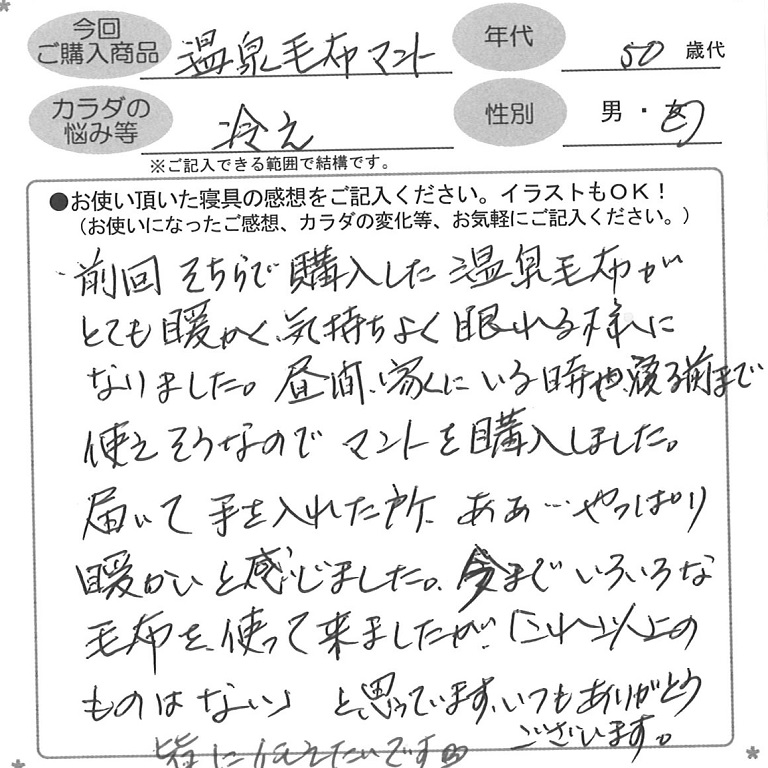 今回
ご購入商品
温泉毛布マント
年代
50 歳代
カラダの
悩み等
冷え
性別
男・女
※ご記入できる範囲で結構です。
●お使い頂いた寝具の感想をご記入ください。イラストもOK!
(お使いになったご感想、カラダの変化等、お気軽にご記入ください。)
前回そちらで購入した温泉毛布が
とても暖かく、気持ちよく眠れる様に
なりました。昼間、家にいる時や、寝る前まで
使えそうなのでマントを購入しました。
届いて手を入れた所、ああ…やっぱり
暖かいと感じました。今までいろいろな
毛布を使って来ましたが、「これ以上の
ものはない」と思っています。いつもありがとう
ございます。
皆に伝えたいです